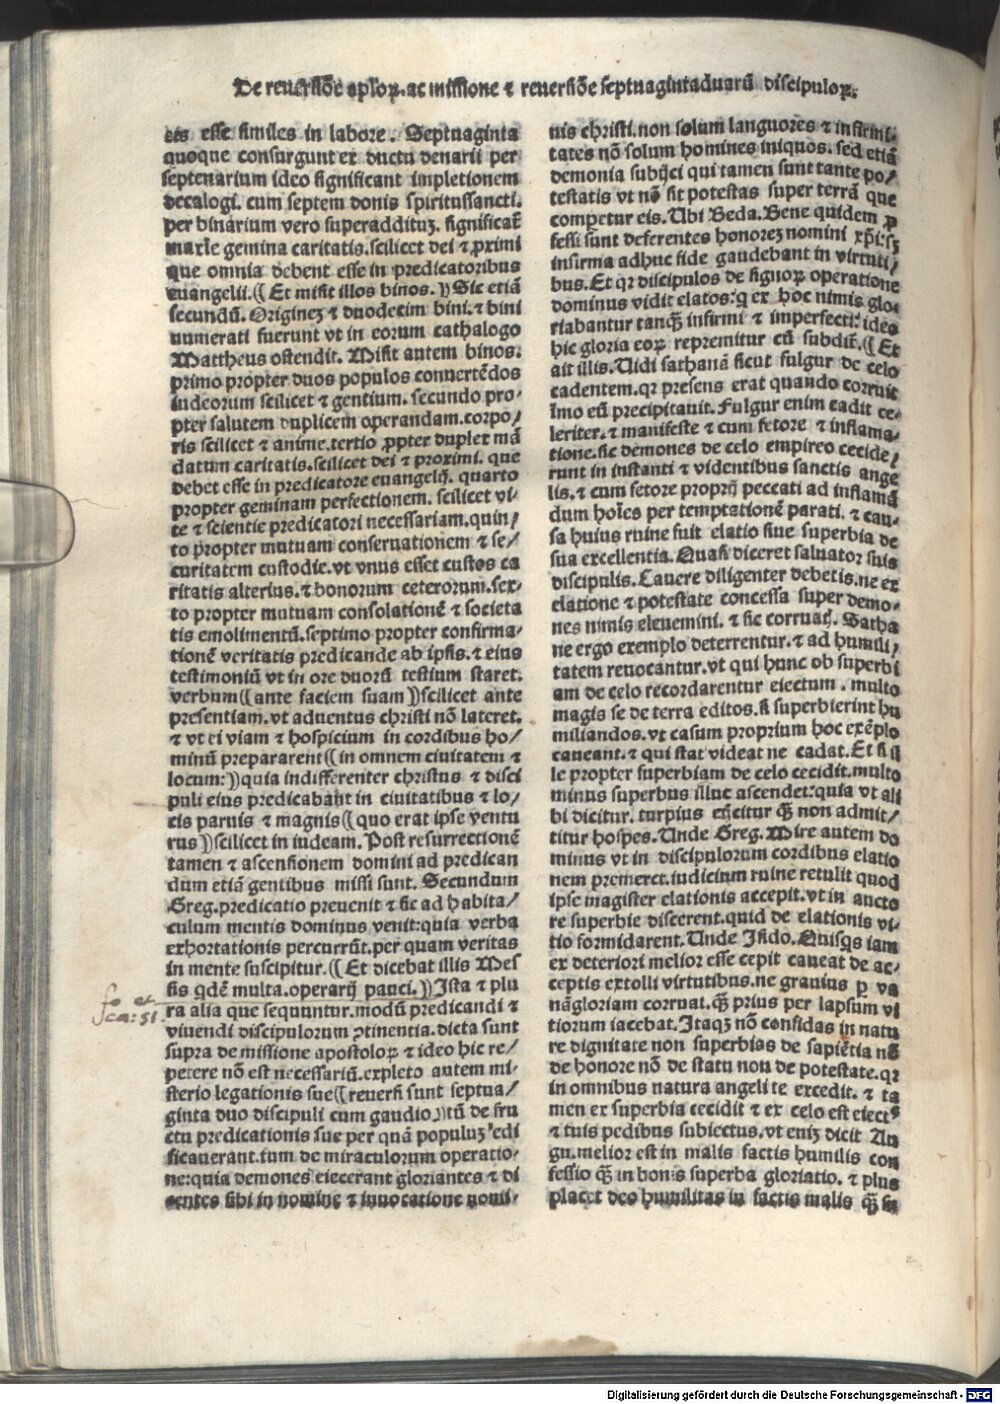 De reuersiõe apl'oꝝ. ac missione ⁊ reuersiõe septuagintaduarũ discipuloꝝ.
eis esse similes in labore. Septuaginta
quoque consurgunt ex ductu denarii per
septenarium ideo significant impletionem
decalogi. cum septem donis spiritussancti.
per binarium vero superaddituꝫ. significat̃
maxĩe gemina caritatis. scilicet dei ⁊ ꝓximi
que omnia debent esse in predicatoribus
euangelii. (( Et misit illos binos. )) Sic etiã
secundũ. Origineꝫ ⁊ duodecim bini. ⁊ bini
numerati fuerunt vt in eorum cathalogo
Mattheus ostendit. Misit autem binos.
primo propter duos populos conuertẽdos
iudeorum scilicet ⁊ gentium. secundo pro-
pter salutem duplicem operandam. corpo/
ris scilicet ⁊ anime. tertio ꝓpter duplex mã
datum caritatis. scilicet dei ⁊ proximi. que
debet esse in predicatore euangelij. quarto
propter geminam perfectionem. scilicet vi-
te ⁊ scientie predicatori necessariam. quin/
to propter mutuam conseruationem ⁊ se/
curitatem custodie. vt vnus esset custos ca
ritatis alterius. ⁊ bonorum ceterorum. sex-
to propter mutuam consolationẽ ⁊ societa
tis emolimentũ. septimo propter confirma-
tionẽ veritatis predicande ab ipsis. ⁊ eius
testimoniũ vt in ore duorũ testium staret.
verbum (( ante faciem suam )) scilicet ante
presentiam. vt aduentus christi nõ lateret.
⁊ vt ei viam ⁊ hospicium in cordibus ho/
minũ prepararent (( in omnem ciuitatem ⁊
locum: )) quia indifferenter christus ⁊ disci
puli eius predicabant in ciuitatibus ⁊ lo/
cis paruis ⁊ magnis (( quo erat ipse ventu
rus )) scilicet in iudeam. Post resurrectionẽ
tamen ⁊ ascensionem domini ad predican
dum etiã gentibus missi sunt. Secundum
Greg. predicatio preuenit ⁊ sic ad habita/
culum mentis dominus venit: quia verba
exhortationis percurrũt. per quam veritas
in mente suscipitur. (( Et dicebat illis Mes
sis qdẽ multa. operarij pauci. )) Ista ⁊ plu
ra alia que sequuntur. modũ predicandi ⁊
viuendi discipulorum ꝯtinentia. dicta sunt
supra de missione apostoloꝝ ⁊ ideo hic re/
petere nõ est necessariũ. expleto autem mi-
sterio legationis sue (( reuersi sunt septua/
ginta duo discipuli cum gaudio )) tũ de fru
ctu predicationis sue per quã populuꝫ edi
ficauerant. tum de miraculorum operatio-
ne: quia demones eiecerant gloriantes ⁊ di
centes sibi in nomine ⁊ inuocatione nomi-
ca: 51.
nis christi. non solum languores ⁊ infirmi-
tates nõ solum homines iniquos. sed etiã
demonia subijci qui tamen sunt tante po/
testatis vt nõ sit potestas super terrã que
competur eis. Ubi Beda. Bene quidem ꝓ
fessi sunt deferentes honoreꝫ nomini xp̃i: sꝫ
infirma adhuc fide gaudebant in virtuti/
bus. Et qr discipulos de signoꝝ operatione
dominus vidit elatos: q ex hoc nimis glo-
riabantur tanqꝫ infirmi ⁊ imperfecti: ideo
hic gloria eoꝝ repremitur cũ subdit̃. (( Et
ait illis. Uidi sathanã sicut fulgur de celo
cadentem. qr presens erat quando corruit
ĩmo eũ precipitauit. Fulgur enim cadit ce-
leriter. ⁊ manifeste ⁊ cum fetore ⁊ inflama-
tione. sic demones de celo empireo cecide/
runt in instanti ⁊ videntibus sanctis ange
lis. ⁊ cum fetore proprij peccati ad inflamã
dum hoĩes per temptationẽ parati. ⁊ cau-
sa huius ruine fuit elatio siue superbia de
sua excellentia. Quasi diceret saluator suis
discipulis. Cauere diligenter debetis. ne ex
elatione ⁊ potestate concessa super demo-
nes nimis eleuemini. ⁊ sic corruatꝫ. Satha
ne ergo exemplo deterrentur. ⁊ ad humili/
tatem reuocantur. vt qui hunc ob superbi
am de celo recordarentur eiectum. multo
magis se de terra editos. si superbierint hu
miliandos. vt casum proprium hoc exẽplo
caueant. ⁊ qui stat videat ne cadat. Et si il
le propter superbiam de celo cecidit. multo
minus superbus illuc ascendet: quia vt ali
bi dicitur. turpius eijcitur qꝫ non admit/
titur hospes. Unde Greg. Mire autem do
minus vt in discipulorum cordibus elatio
nem premeret. iudicium ruine retulit quod
ipse magister elationis accepit. vt in aucto
re superbie discerent. quid de elationis vi-
tio formidarent. Unde Isido. Quisqs iam
ex deteriori melior esse cepit caueat de ac-
ceptis extolli virtutibus. ne grauius p va
nãgloriam corruat. qꝫ prius per lapsum vi
tiorum iacebat. Itaqꝫ nõ confidas in natu
re dignitate non superbias de sapiẽtia nõ
de honore nõ de statu non de potestate. qr
in omnibus natura angeli te excedit. ⁊ ta
men ex superbia cecidit ⁊ ex celo est eiectꝰ
⁊ tuis pedibus subiectus. vt eniꝫ dicit Au
gu. melior est in malis factis humilis con
fessio qꝫ in bonis superba gloriatio. ⁊ plus
placet deo humilitas in factis malis qꝫ su
Digitalisierung gefördert durch die Deutsche Forschungsgemeinschaft - DFG